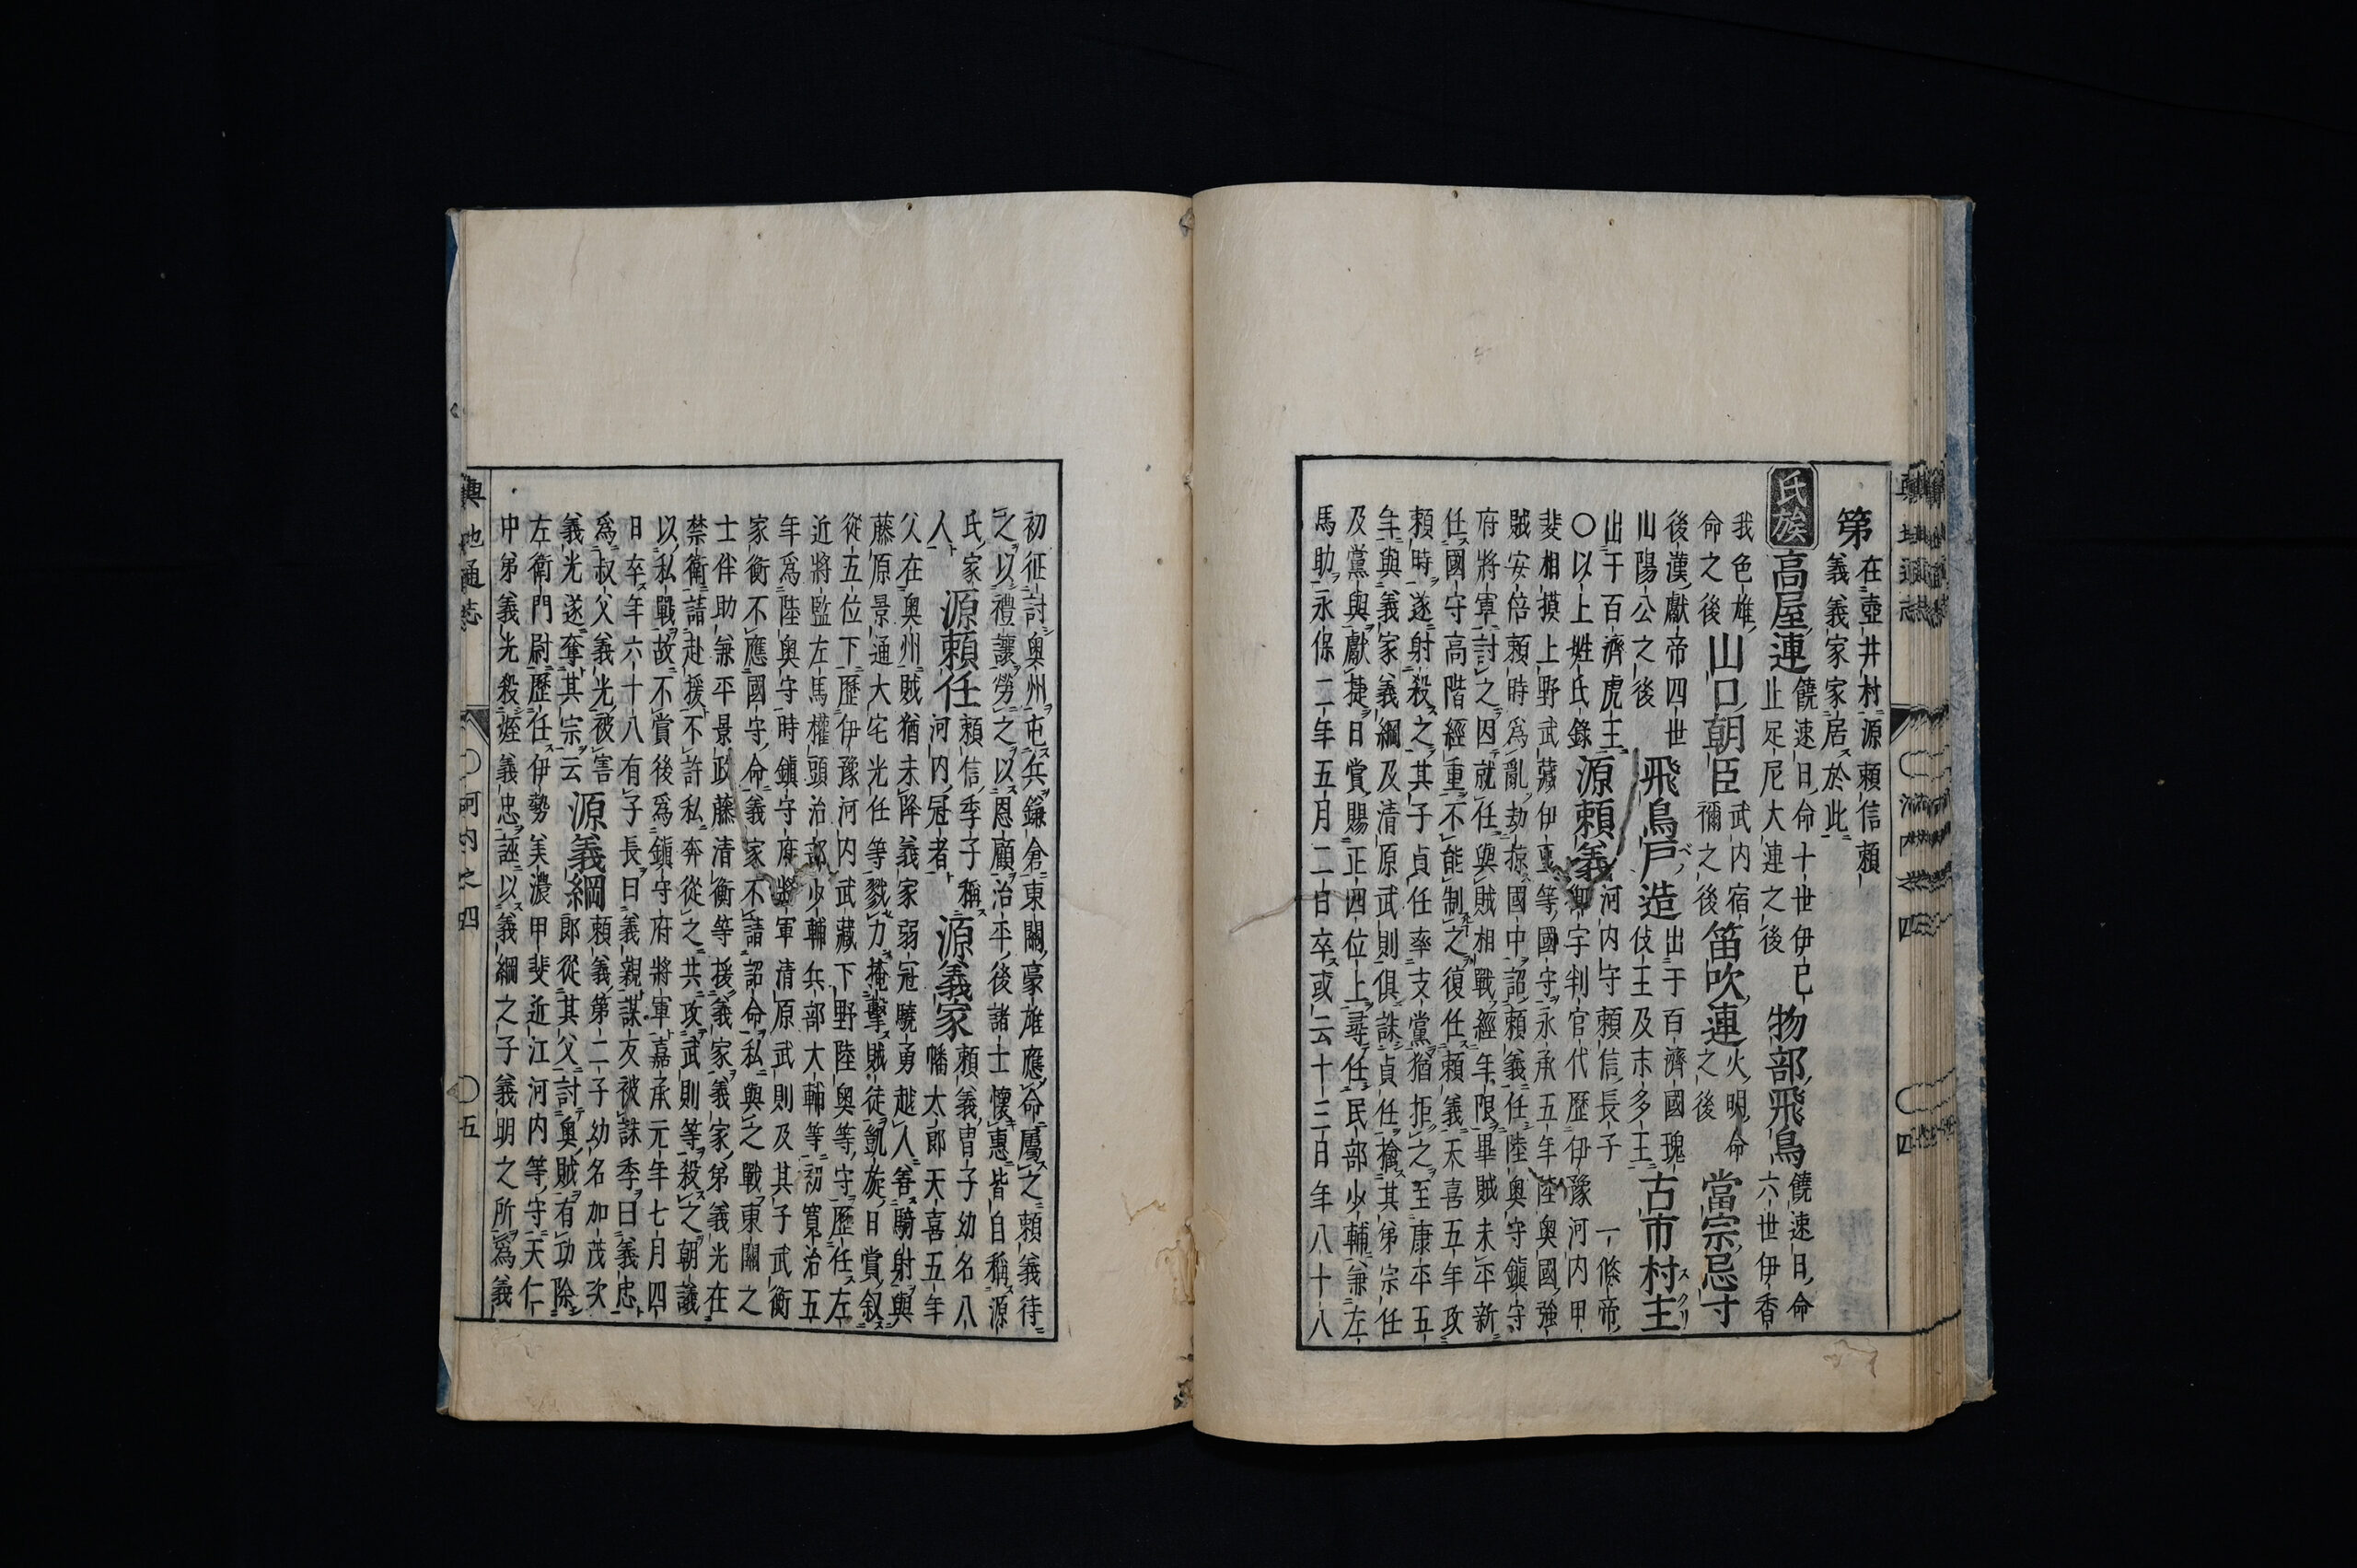 第 在壺井村源頼信頼
義義家家居於此
氏族
高屋連 饒速日命十世伊己
止足尼大連之後
物部飛鳥 饒速日命
六世伊香
我色雄
命之後
山口朝臣 武内宿
禰之後
笛吹連 火明命
之後
當宗忌寸
後漢獻帝四世
山陽公之後
飛鳥戸造 出于百濟國琨
伎王及末多王
古市村主
出于百濟虎王
〇以上姓氏錄
源頼義 河内守頼信長子 一條帝
御宇判官代歴伊豫河内甲
斐相摸上野武藏伊豆等國守永承五年陸奥國強
賊安倍頼時爲亂劫掠國中詔頼義任陸奥守鎮守
府將軍討之因就任與賊相戰經年限畢賊未平新
任國守高階經重不能制之復任頼義天喜五年攻
頼時遂射殺之其子貞任率支黨猶拒之至康平五
年與義家義綱及清原武則俱誅貞任擒其弟宗任
及黨與獻捷日賞賜正四位上尋任民部少輔兼左
馬助永保二年五月二日卒或云十三日年八十八
初征討奥州屯兵鎌倉東關豪雄應命屬之頼義待
之以禮讓勞之以恩顧治平後諸士懷惠皆自稱源
氏家
人
源頼任 頼信季子稱
河内冠者
源義家 頼義冑子幼名八
幡太郎天喜五年
父在奥州賊猶未降義家弱冠驍勇越人善騎射與
藤原景通大宅光任等戮力掩擊賊徒凱旋日賞叙
從五位下歴伊豫河内武藏下野陸奥等守歴任左
近將監左馬權頭治部少輔兵部大輔等初寛治五
年爲陸奥守時鎮守府將軍清原武則及其子武衡
家衡不應國守命義家不請詔命私與之戰東關之
士伴助兼平景政藤清衡等援義家義家弟義光在
禁衛請赴援不許私奔從之共攻武則等殺之朝議
以私戰故不賞後爲鎮守府將軍嘉承元年七月四
日卒年六十八有子長曰義親謀反被誅季曰義忠
爲叔父義光被害
義光遂奪其宗云
源義綱 頼義第二子幼名加茂次
郎從其父討奥賊有功除
左衛門尉歴任伊勢美濃甲斐近江河内等守天仁
中弟義光殺姪義忠誣以義綱之子義明之所爲義
輿地通志
〇河内之四
〇五